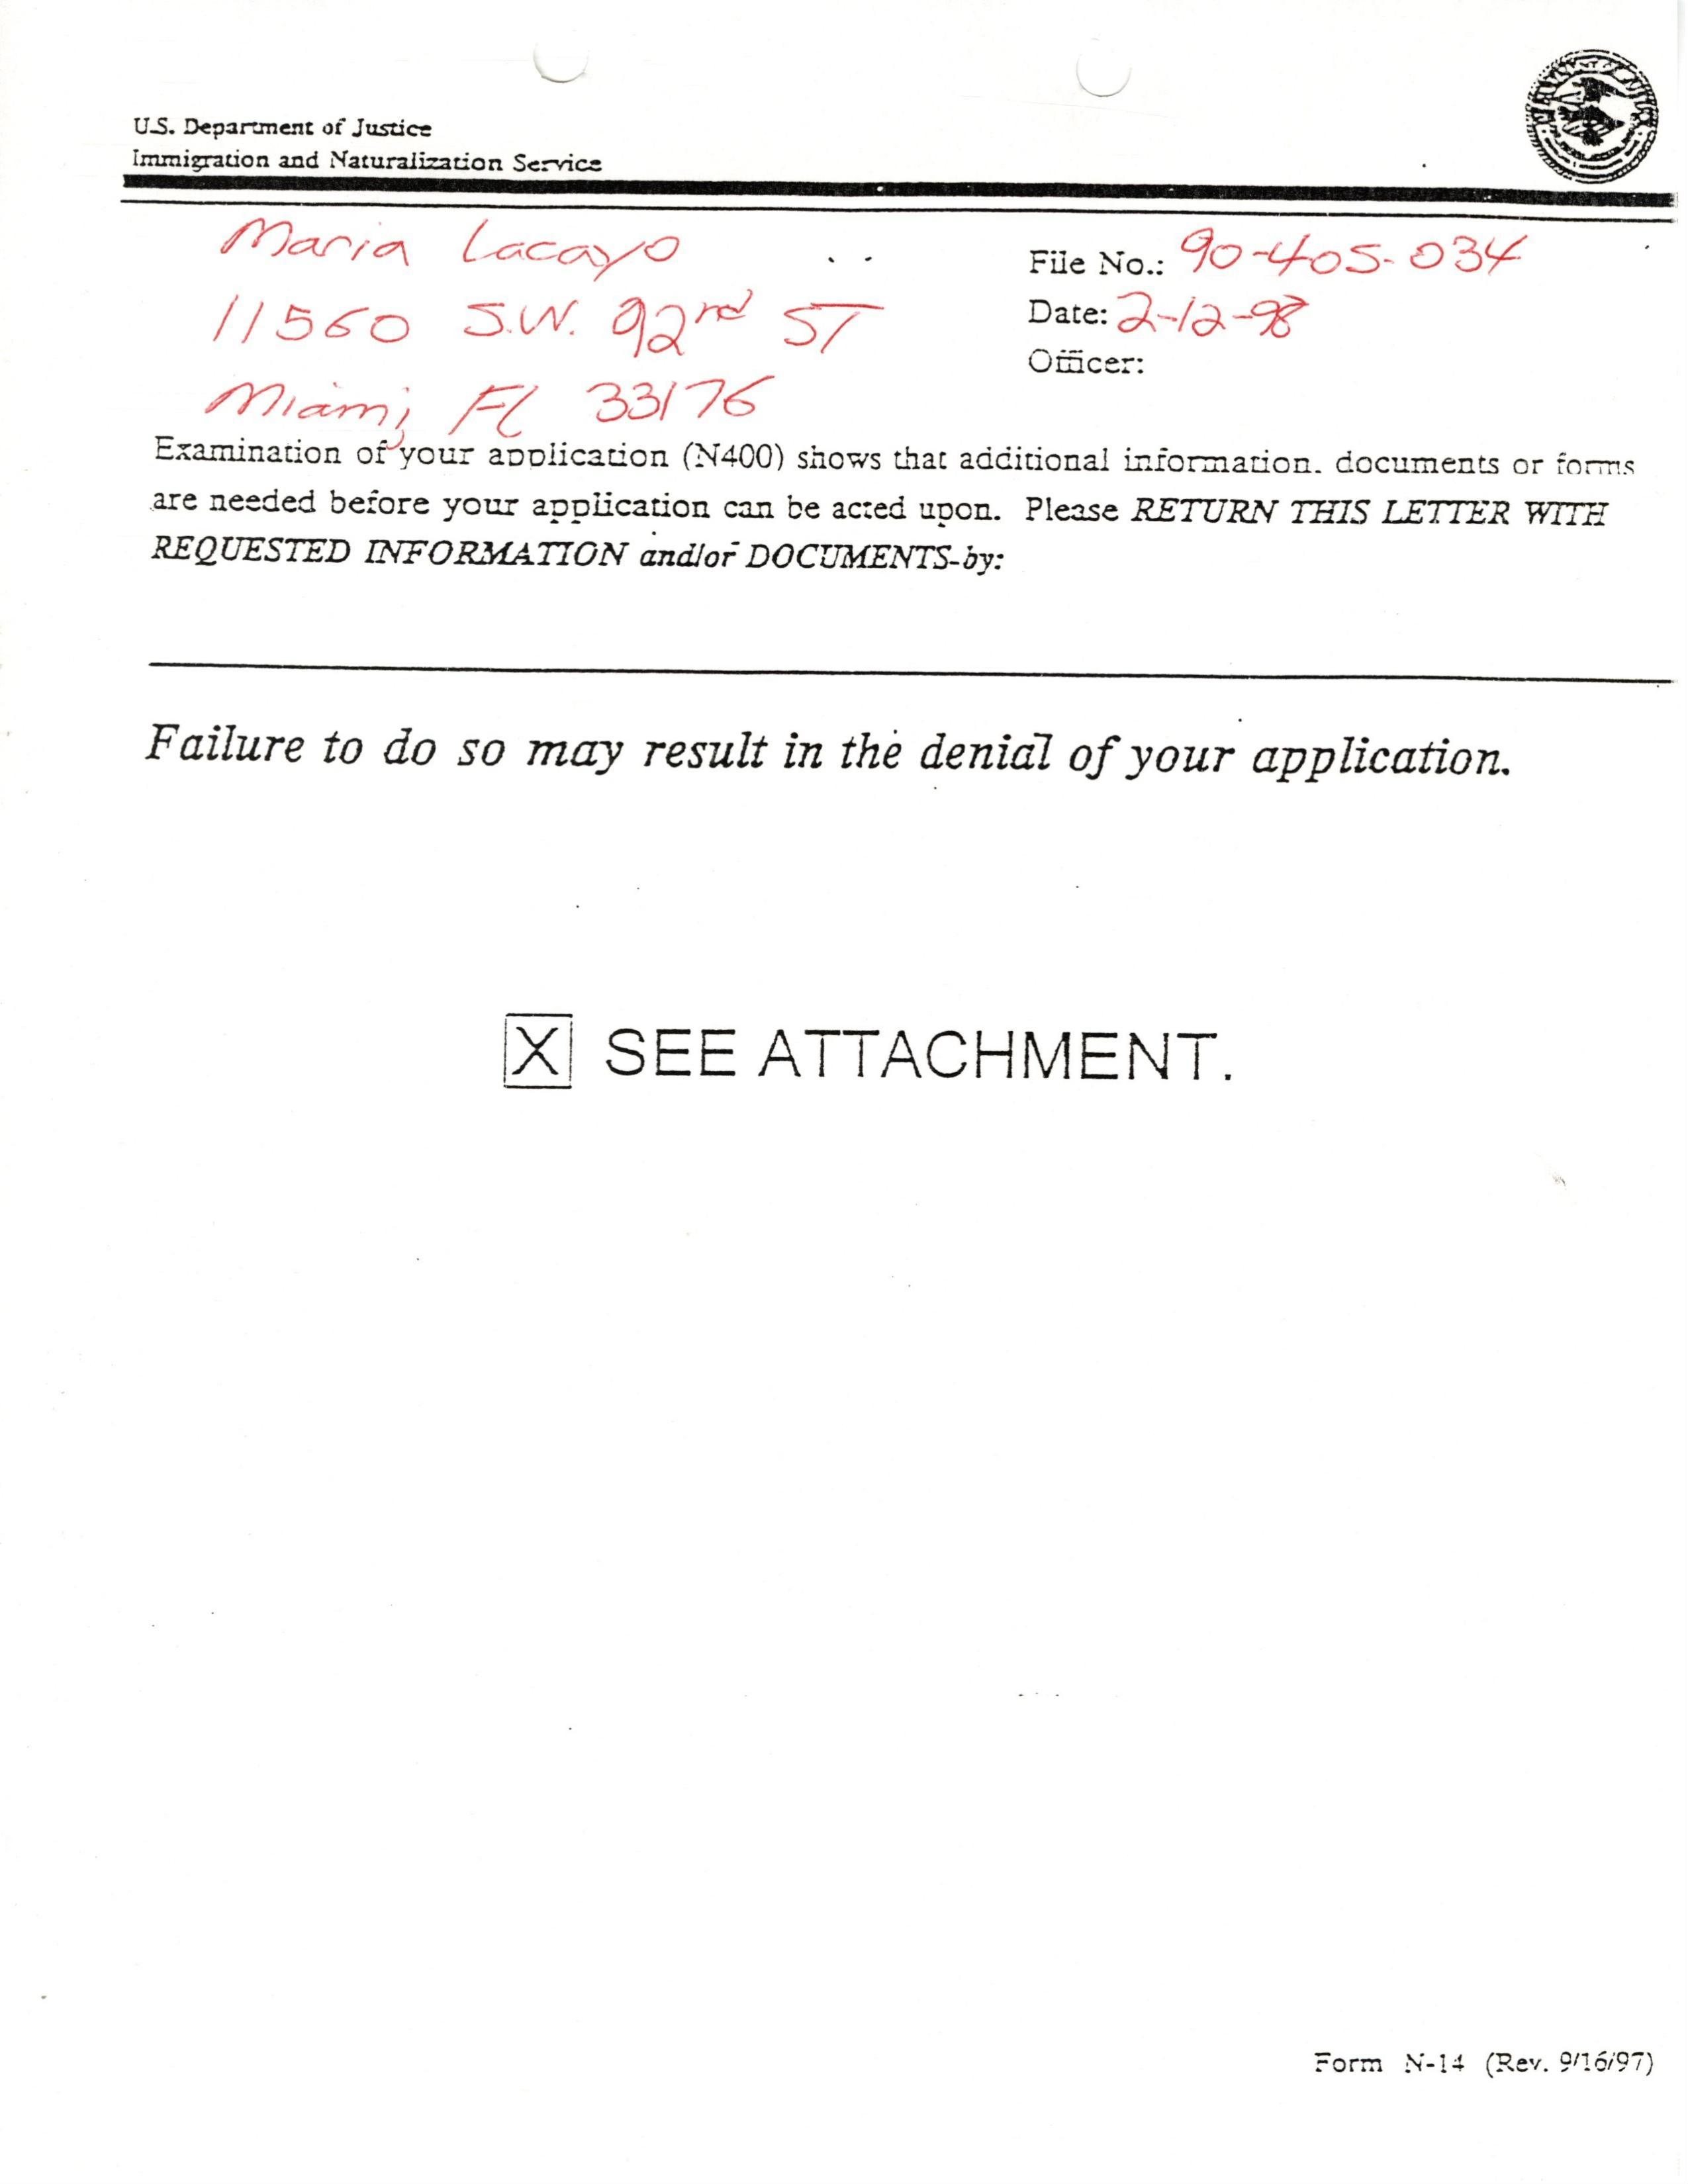 U.S. Department of Justice
Immigration and Naturalization Service
Maria Lacayo
11560 S.W. 92nd ST
Miami, Fl 33176
File No.: 90-405-034
Date: 2-12-98
Officer:
Examination of your application (N400) shows that additional information, documents or forms
are needed before your application can be acted upon. Please RETURN THIS LETTER WITH
REQUESTED INFORMATION and/or DOCUMENTS by:
Failure to do so may result in the denial of your application.
X SEE ATTACHMENT.
Form N-14 (Rev. 9/16/97)